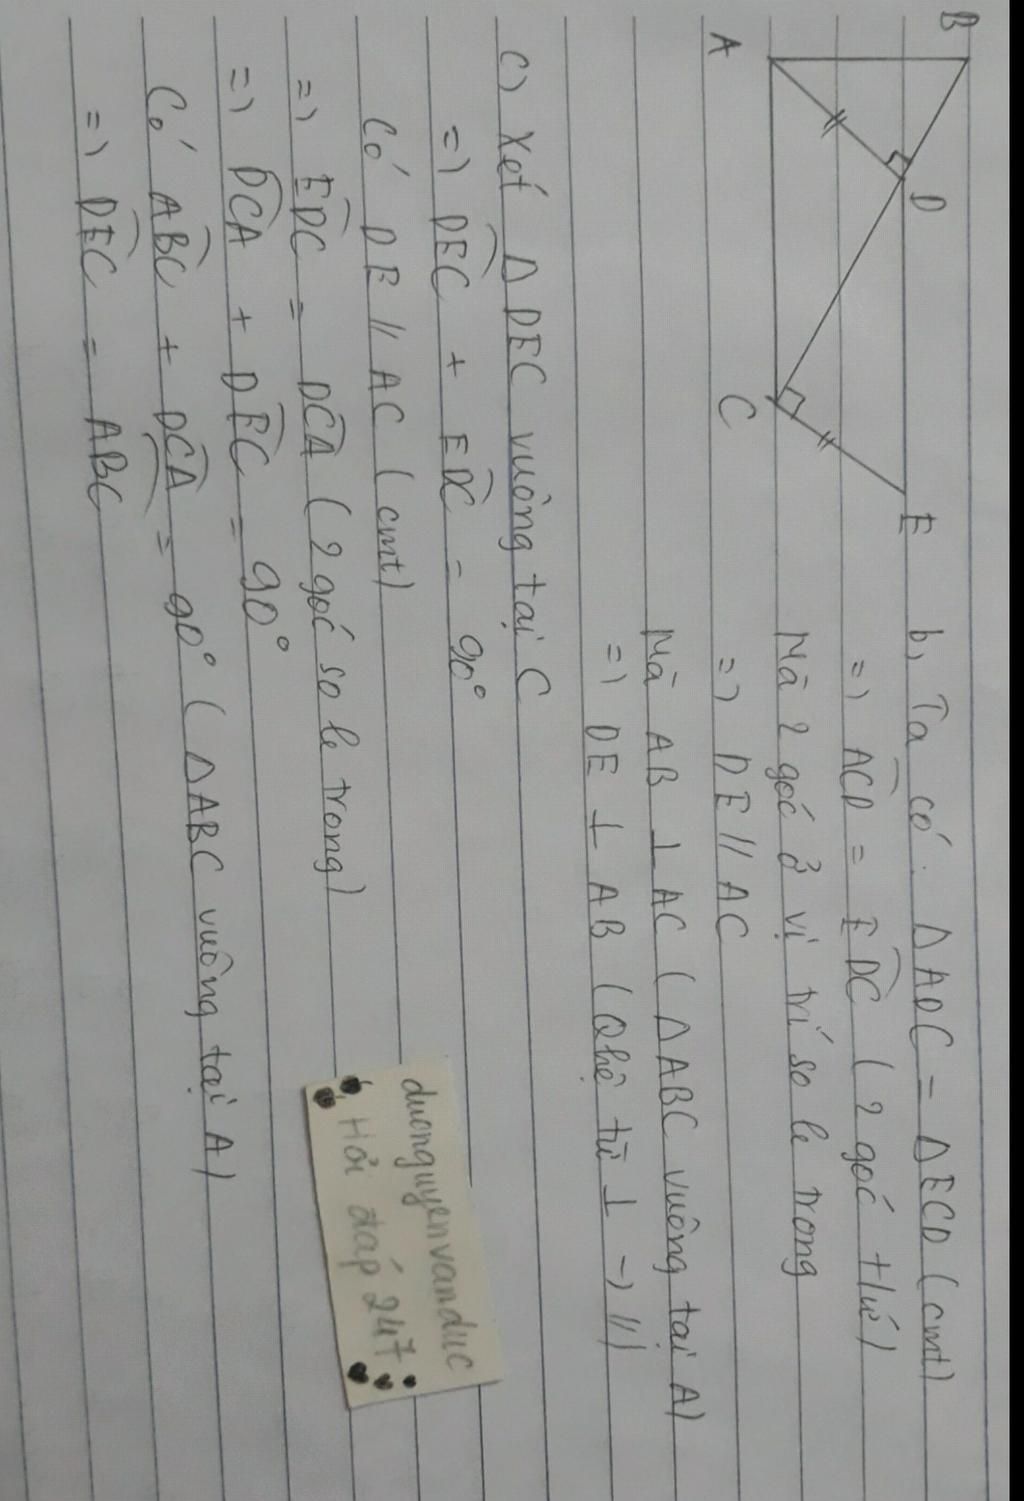 B
A
D
C
E
b, Ta có: ΔADC = ΔECD (cmt)
=) ACD = EDC (2 góc t/ứ)
Mà 2 góc ở vị trí so le trong
=) DE // AC
Mà AB ⊥ AC (ΔABC vuông tại A)
=) DE ⊥ AB (Qhệ từ ⊥ -> //)
c) Xét ΔDEC vuông tại C
=) DEC + EDC = 90°
Có DE // AC (cmt)
=) EDC = DCA (2 góc so le trong)
=) DCA + DEC = 90°
Có ABC + DCA = 90° (ΔABC vuông tại A)
=) DEC = ABC
duonguyenvanduc
Hỏi đáp 247